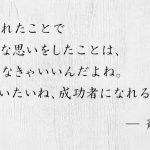 れたことで
な思いをしたことは、
なきゃいいんだよね。
いたいね、成功者になれる
—